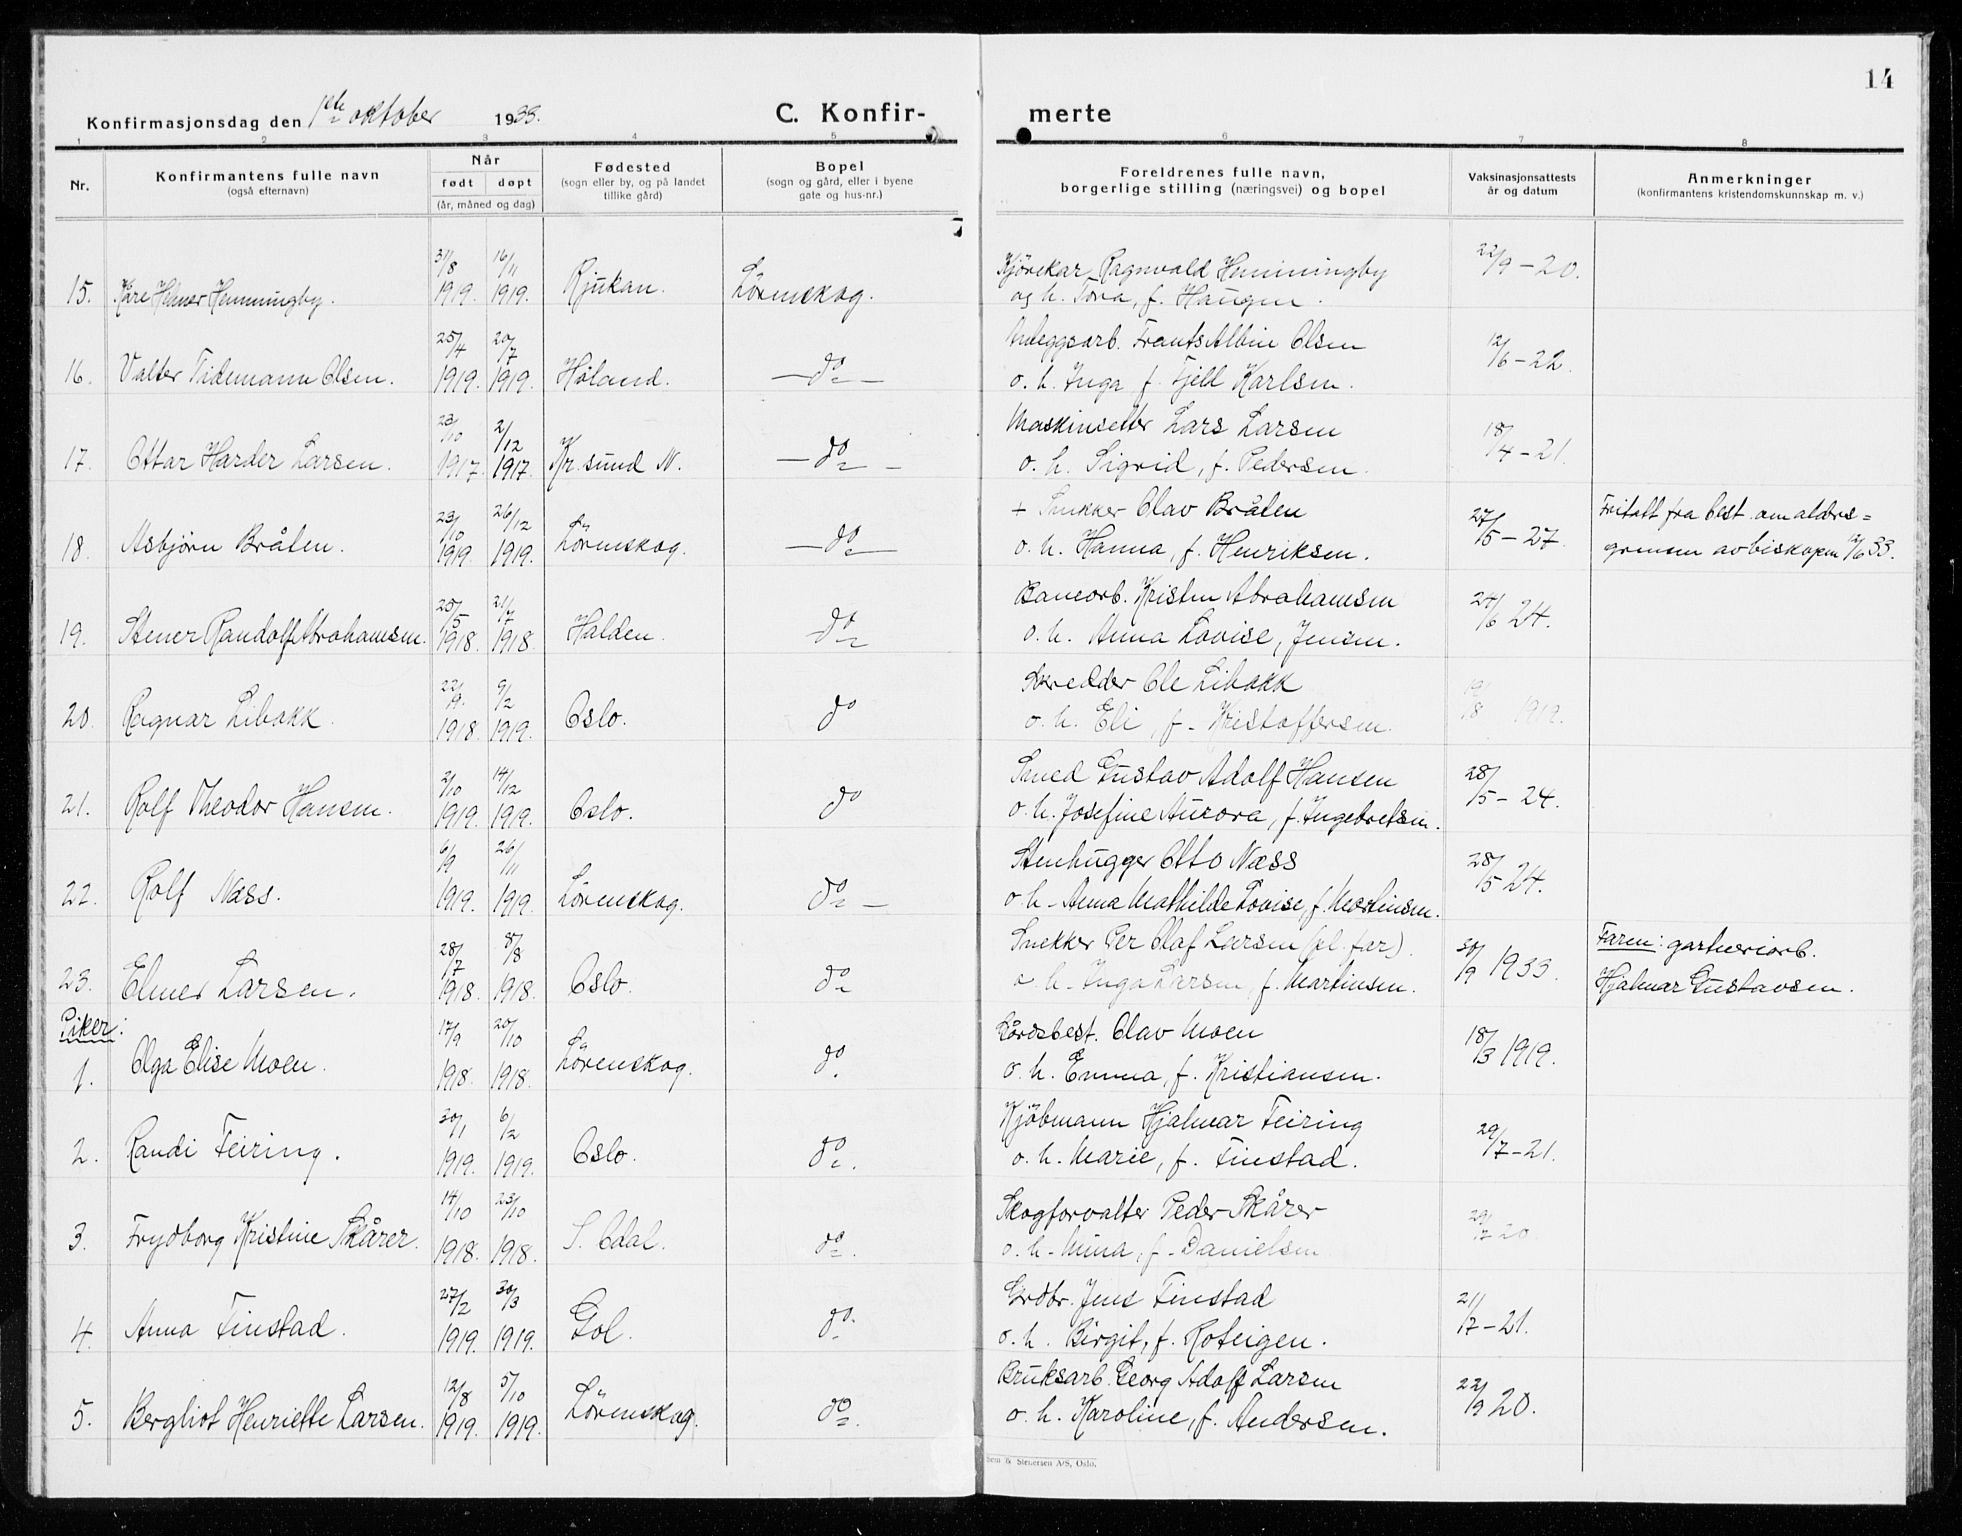 14
Konfirmasjonsdag den 1ste oktober 1933. C. Konfir- merte
1 2 3 4 5 6 7 8
Nr. Konfirmantens fulle navn (også efternavn) Når født døpt (år, måned og dag) Fødested (sogn eller by, og på landet tillike gård) Bopel (sogn og gård, eller i byene gate og hus-nr.) Foreldrenes fulle navn, borgerlige stilling (næringsvei) og bopel Vaksinasjonsattests år og datum Anmerkninger (konfirmantens kristendomskunnskap m. v.)
31/8 16/11 Kjørekar Ragnvald Henningby 22/9-20.
15. Kåre Henningby. 1919. 1919. Rjukan. Lörenskog. og h. Tora, f. Haugen.
25/4 20/7 Anleggsarb. Frants Albin Olsen 12/6-22.
16. Valter Tidemann Olsen. 1919. 1919. Höland. — do — o. h. Inga f. Fjell Karlsen.
23/10 2/12 Maskinsetter Lars Larsen 18/4-21.
17. Ottar Harder Larsen. 1917. 1917. Kr.sund N. — do — o. h. Sigrid, f. Pedersen.
23/10 26/12 + Snekker Olav Bråten 27/5-27. Fritatt fra best. om alders=
18. Asbjörn Bråten. 1919. 1919. Lörenskog. — do — o. h. Hanna, f. Henriksen. grensen av biskopen 12/6 33.
25/5 21/7 Banearb. Kristen Abrahamsen 24/6 24.
19. Stener Randolf Abrahamsen. 1918. 1918. Halden. do o. h. Anna Lovise, Jensen.
22/9. 9/2 Skredder Ole Libakk 19/8 1919.
20. Ragnar Libakk. 1918. 1919. Oslo. do o. h. Eli, f. Kristoffersen.
2/10 14/12 Smed Gustav Adolf Hansen 28/5-24.
21. Rolf Theodor Hansen. 1919. 1919. Oslo. do o. h. Josefine Aurora, f. Ingebretsen.
6/9 26/11 Stenhugger Otto Næss 28/5-24.
22. Rolf Næss. 1919. 1919. Lörenskog. do — o. h. Anna Mathilde Lovise, f. Martinsen.
28/7 8/8 Snekker Per Olaf Larsen (pl. far). 30/9 1933. Faren: gartneriarb.
23. Elmer Larsen. 1918. 1918. Oslo. do o. h. Inga Larsen, f. Martinsen. Hjalmar Gustavsen.
Piker:
17/9 20/10 Gårdsbest. Olav Moen 18/3 1919.
1. Olga Elise Moen. 1918. 1918. Lörenskog. do. o. h. Emma, f. Kristiansen.
30/1 6/2 Kjöbmann Hjalmar Feiring 29/7-21.
2. Randi Feiring. 1919. 1919. Oslo. do. o. h. Marie, f. Finstad.
14/10 23/10 Skogforvalter Peder Skårer 29/7 20.
3. Frydborg Kristine Skårer. 1918. 1918. S. Odal. do. o. h. Mina, f. Danielsen
27/2 30/3 Grdbr. Jens Finstad 21/7-21.
4. Anna Finstad. 1919. 1919. Gol. do. o. h. Birgit, f. Roteigen.
12/8 5/10 Bruksarb. Georg Adolf Larsen 22/9 20.
5. Bergliot Henriette Larsen. 1919. 1919. Lörenskog. do. o. h. Karoline, f. Andersen.
Sem & Stenersen A/S, Oslo.